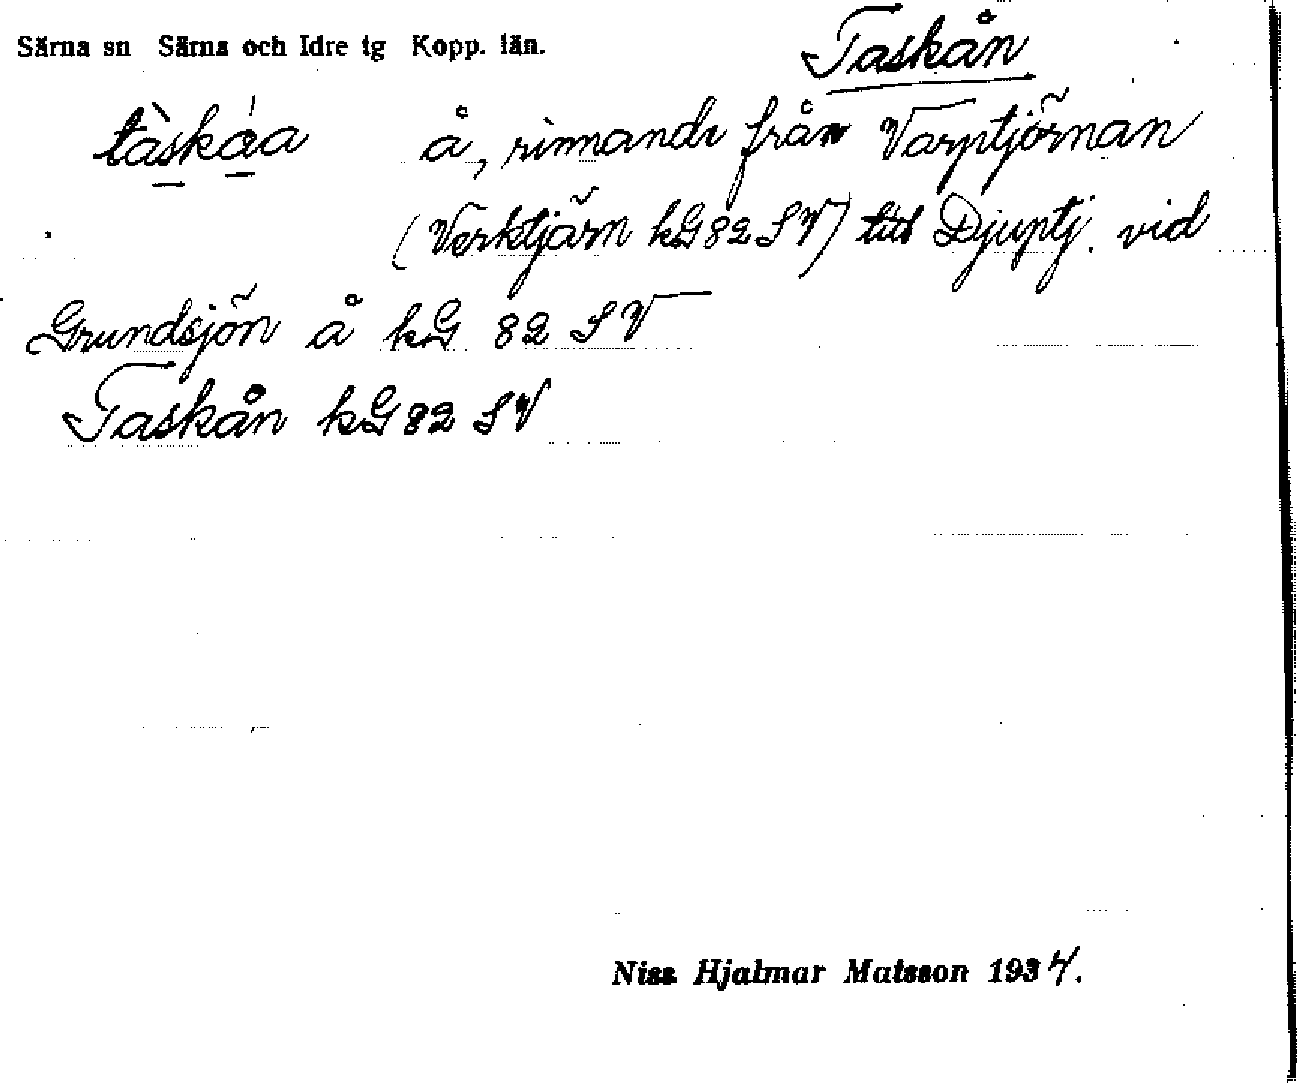 Särna sn Särna och Idre tg Kopp. län. Taskån
tàskáa å, rinnande från Varptjörnan
(Verktjärn kG 82 SV) till Djuptj. vid
Grundsjön å kG 82 SV
Taskån kG 82 SV
Niss Hjalmar Matsson 1934.